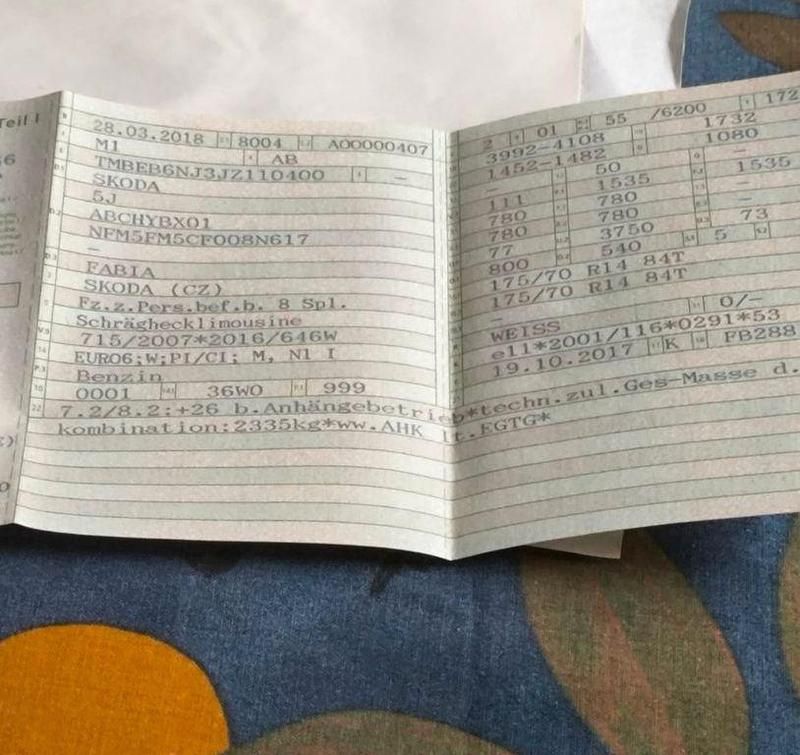 Teil I
28.03.2018 8004 A00000407
M1 AB
TMBEB6NJ3JZ110400 –
SKODA
5J
ABCHYBX01
NFM5FM5CF008N617
–
FABIA
SKODA (CZ)
Fz.z.Pers.bef.b. 8 Spl.
Schräghecklimousine
715/2007*2016/646W
EURO6;W;PI/CI; M, N1 I
Benzin
0001 36W0 999
2 01 55 /6200 172
3992-4108 1732
1452-1482 1080
– 50 –
111 1535 1535
780 780 –
780 780 –
77 3750 73
800 540 5
175/70 R14 84T
175/70 R14 84T
–
WEISS 0/–
e11*2001/116*0291*53
19.10.2017 K FB288
7.2/8.2:+26 b.Anhängebetrieb*techn.zul.Ges-Masse d.
kombination:2335kg*ww.AHK lt.EGTG*